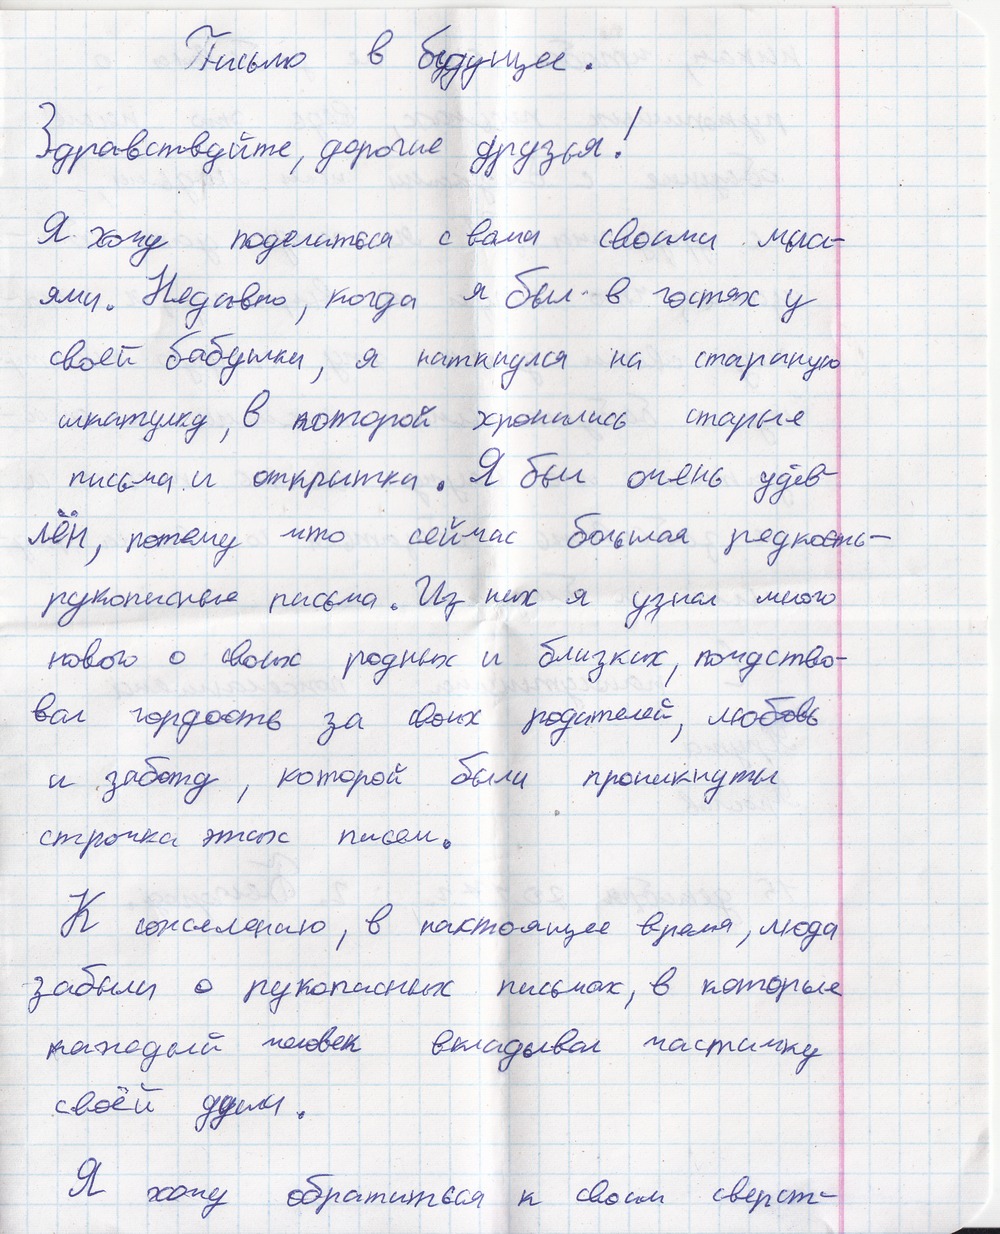 Письмо в будущее.
Здравствуйте, дорогие друзья!
Я хочу поделиться с вами своими мысл-
ями. Недавно, когда я был в гостях у
своей бабушки, я наткнулся на старинную
шкатулку, в которой хранились старые
письма и открытки. Я был очень удив-
лён, потому что сейчас большая редкость-
рукописные письма. Из них я узнал много
нового о своих родных и близких, почувство-
вал гордость за своих родителей, любовь
и заботу, которой были проникнуты
строчки этих писем.
К сожалению, в настоящее время, люди
забыли о рукописных письмах, в которые
каждый человек вкладывал частичку
своей души.
Я хочу обратиться к своим сверст-